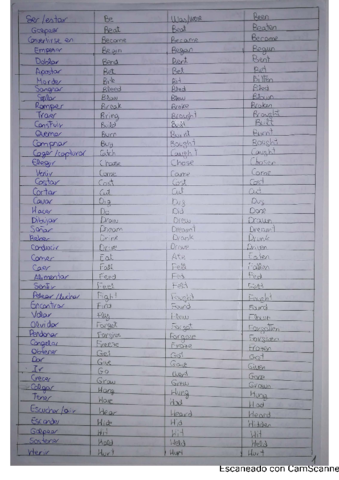 Ser/estar Be Was/were Been
Golpear Beat Beat Beaten
Convertirse en Become Became Become
Empezar Begin Began Begun
Doblar Bend Bent Bent
Apostar Bet Bet Bet
Morder Bite Bit Bitten
Sangrar Bleed Bled Bled
Soplar Blow Blew Blown
Romper Break Broke Broken
Traer Bring Brought Brought
Construir Build Built Built
Quemar Burn Burnt Burnt
Comprar Buy Bought Bought
Coger/capturar Catch Caught Caught
Elegir Choose Chose Chosen
Venir Come Came Come
Costar Cost Cost Cost
Cortar Cut Cut Cut
Cavar Dig Dug Dug
Hacer Do Did Done
Dibujar Draw Drew Drawn
Soñar Dream Dreamt Dreamt
Beber Drink Drank Drunk
Conducir Drive Drove Driven
Comer Eat Ate Eaten
Caer Fall Fell Fallen
Alimentar Feed Fed Fed
Sentir Feel Felt Felt
Pelear/luchar Fight Fought Fought
Encontrar Find Found Found
Volar Fly Flew Flown
Olvidar Forget Forgot Forgotten
Perdonar Forgive Forgave Forgiven
Congelar Freeze Froze Frozen
Obtener Get Got Got
Dar Give Gave Given
Ir Go Went Gone
Crecer Grow Grew Grown
Colgar Hang Hung Hung
Tener Have Had Had
Escuchar/oír Hear Heard Heard
Esconder Hide Hid Hidden
Golpear Hit Hit Hit
Sostener Hold Held Held
Herir Hurt Hurt Hurt
1
Escaneado con CamScanner